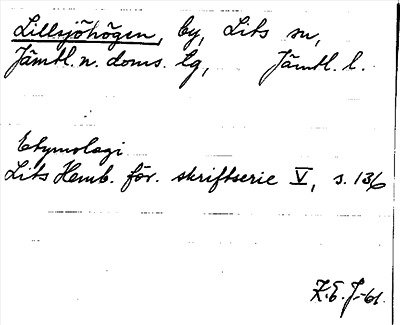 Lillsjöhögen, by, Lits sn,
Jämtl. n. doms. lg, Jämtl. l.
Etymologi
Lits Hemb. för. skriftserie V, s. 136
K.E.J.-61.